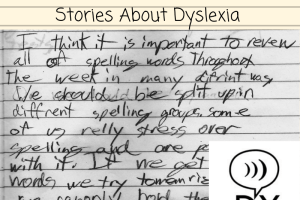 Stories About Dyslexia
I think it is important to revew
all of spelling words Throghoot
the week in many difrint way
We should be split up in
diffrent spelling groups. some
of us relly stress over
spelling and are p
with it. If we get
words we try
hold the
DY